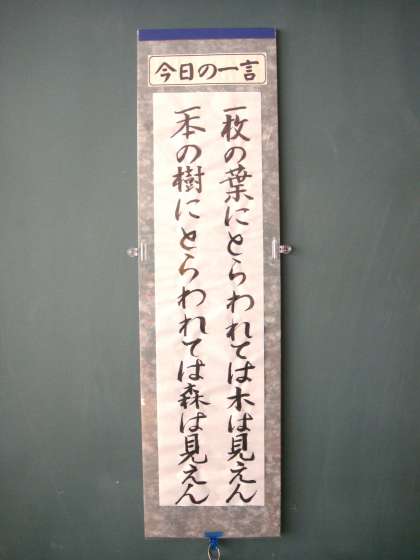 今日の一言
一枚の葉にとらわれては木は見えん
一本の樹にとらわれては森は見えん